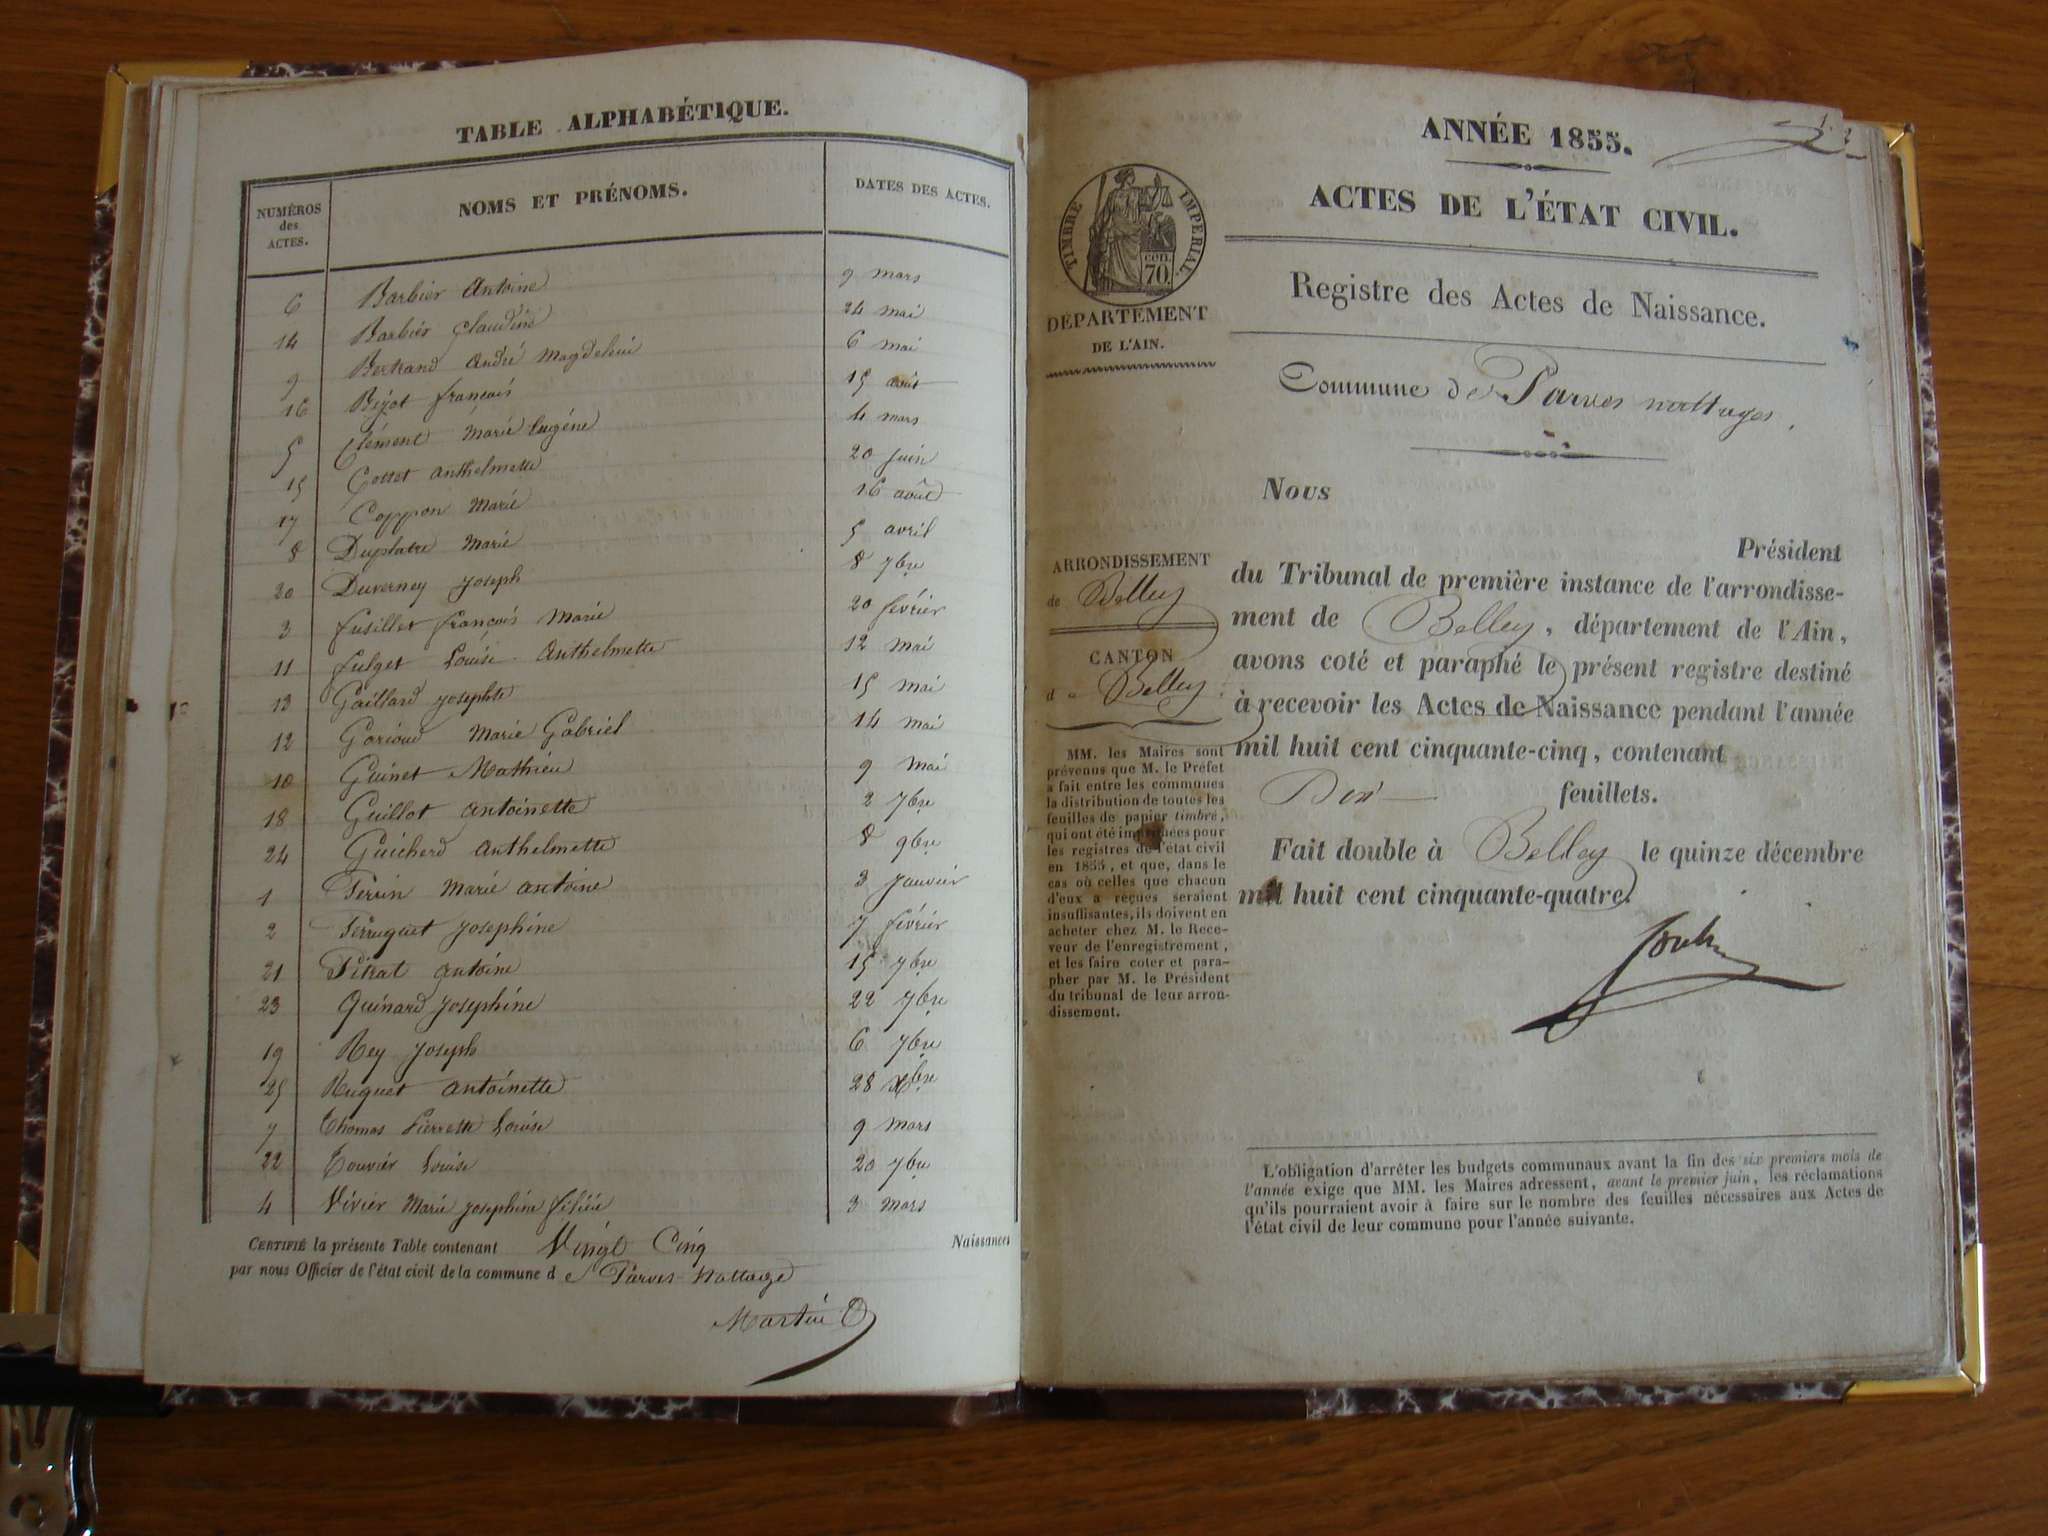 TABLE ALPHABÉTIQUE.
NUMÉROS des ACTES.
NOMS ET PRÉNOMS.
DATES DES ACTES.
6 Barbier Antoine 9 mars
14 Barbier Claudine 24 mai
9 Bertrand André Magdeleine 6 mai
16 Bizot françois 15 août
5 Clément Marie Eugéne 4 mars
15 Cottet Anthelmette 20 juin
17 Coppon Marie 16 août
8 Duplatre Marie 5 avril
20 Duverney Joseph 8 7bre
3 fusillet françois Marie 20 février
11 fulget Louise Anthelmette 12 mai
13 Gaillard Josephte 15 mai
12 Garioud Marie Gabriel 14 mai
10 Guinet Mathieu 9 mai
18 Guillot antoinette 2 7bre
24 Guicherd Anthelmette 8 9bre
1 Perrin Marie antoine 3 Janvier
2 Perruquet Josephine 7 février
21 Pétrat antoine 15 7bre
23 Quinard Josephine 22 7bre
19 Rey Joseph 6 7bre
25 Ruguet antoinette 28 Xbre
7 Thomas Pierrette Louise 9 mars
22 Touvier Louise 20 7bre
4 Vivier Marie Josephine 3 mars
CERTIFIÉ la présente Table contenant Vingt Cinq Naissances
par nous Officier de l'état civil de la commune de Parves-Nattage
Martin
ANNÉE 1855.
ACTES DE L'ÉTAT CIVIL.
TIMBRE IMPÉRIAL.
cen. 70.
DÉPARTEMENT
DE L'AIN.
Registre des Actes de Naissance.
Commune de Parves nattages.
Nous
Président
ARRONDISSEMENT
de Belley
CANTON
de Belley.
du Tribunal de première instance de l'arrondisse-
ment de Belley, département de l'Ain,
avons coté et paraphé le présent registre destiné
à recevoir les Actes de Naissance pendant l'année
mil huit cent cinquante-cinq, contenant
Dix feuillets.
Fait double à Belley le quinze décembre
mil huit cent cinquante-quatre.
MM. les Maires sont
prévenus que M. le Préfet
a fait entre les communes
la distribution de toutes les
feuilles de papier timbré,
qui ont été imprimées pour
les registres de l'état civil
en 1855, et que, dans le
cas où celles que chacun
d'eux a reçues seraient
insuffisantes, ils doivent en
acheter chez M. le Rece-
veur de l'enregistrement,
et les faire coter et para-
pher par M. le Président
du tribunal de leur arron-
dissement.
L'obligation d'arrêter les budgets communaux avant la fin des six premiers mois de
l'année exige que MM. les Maires adressent, avant le premier juin, les réclamations
qu'ils pourraient avoir à faire sur le nombre des feuilles nécessaires aux Actes de
l'état civil de leur commune pour l'année suivante.